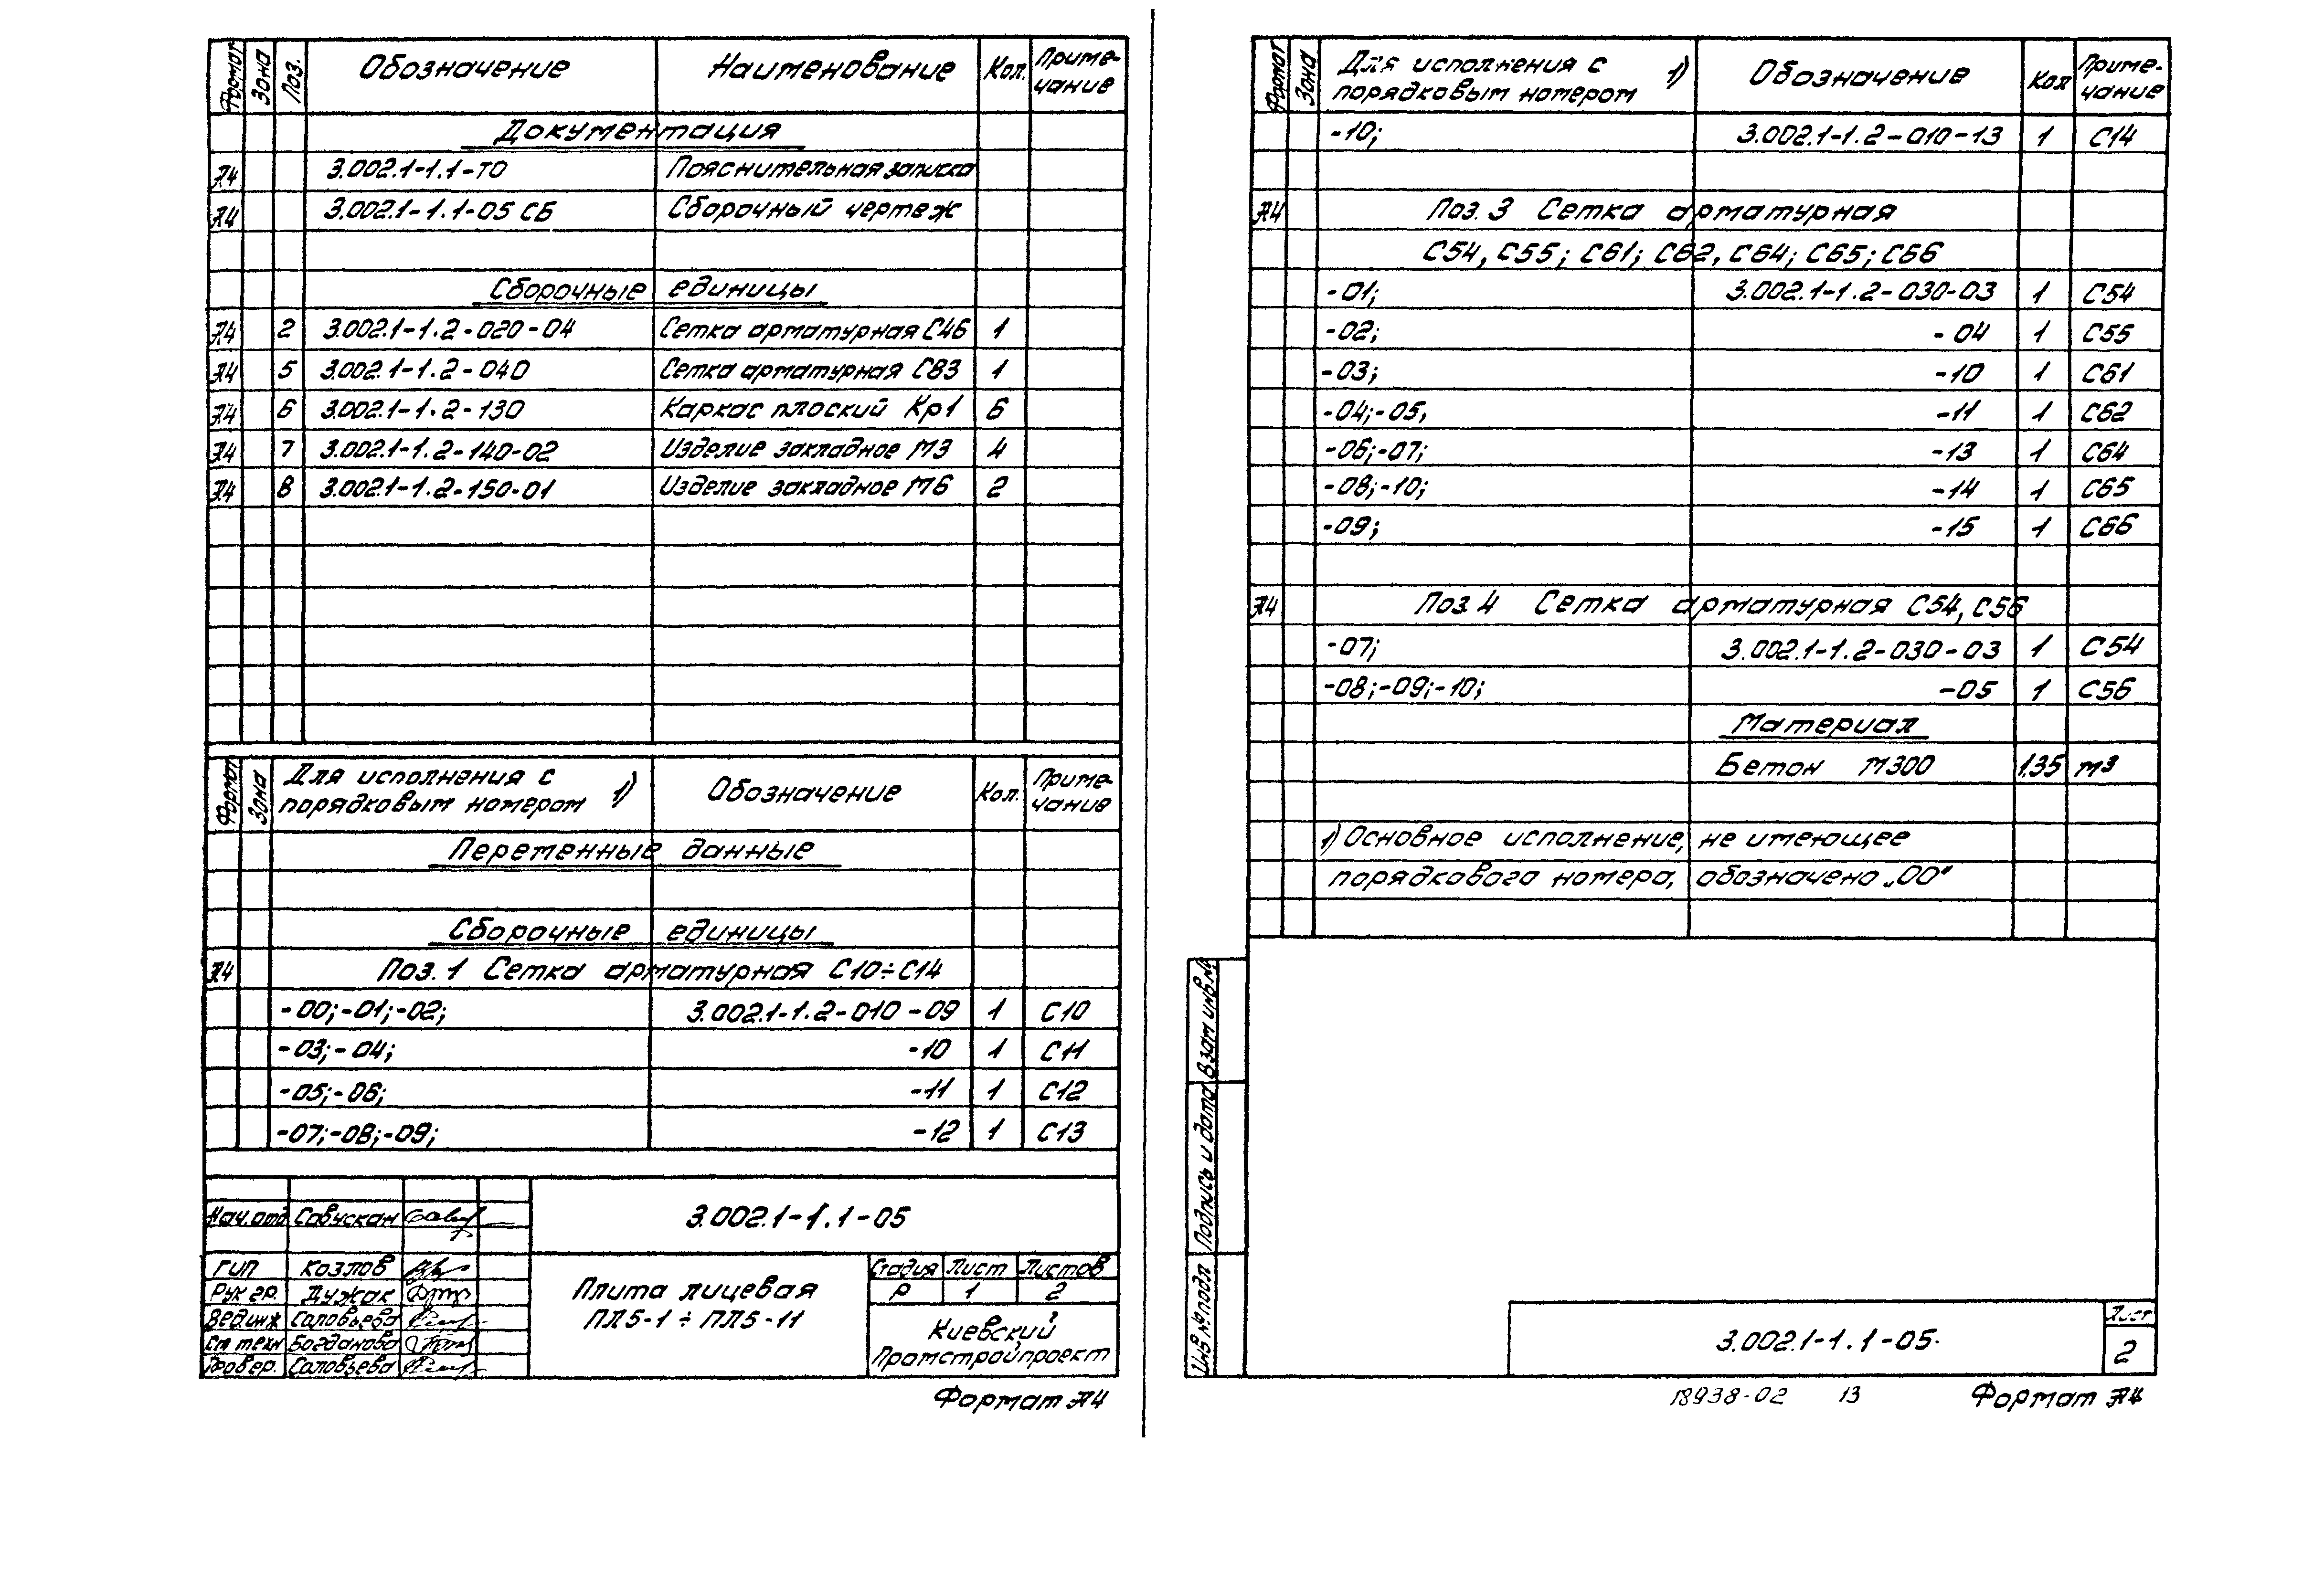 Формат Зона Поз. Обозначение Наименование Кол. Приме-
чание
Документация
А4 3.002.1-1.1-ТО Пояснительная записка
А4 3.002.1-1.1-05 СБ Сборочный чертеж
Сборочные единицы
А4 2 3.002.1-1.2-020-04 Сетка арматурная С46 1
А4 5 3.002.1-1.2-040 Сетка арматурная С83 1
А4 6 3.002.1-1.2-130 Каркас плоский Кр1 6
А4 7 3.002.1-1.2-140-02 Изделие закладное М3 4
А4 8 3.002.1-1.2-150-01 Изделие закладное М6 2
Формат Зона Для исполнения с
порядковым номером 1) Обозначение Кол. Приме-
чание
Переменные данные
Сборочные единицы
А4 Поз. 1 Сетка арматурная С10÷С14
-00;-01;-02; 3.002.1-1.2-010-09 1 С10
-03;-04; -10 1 С11
-05;-06; -11 1 С12
-07;-08;-09; -12 1 С13
3.002.1-1.1-05
Нач.отд Савускан
ГИП Козлов
Рук гр. Дужак
Вединж Соловьева
Ст техн Богданова
Провер. Соловьева
Плита лицевая
ПЛ5-1 ÷ ПЛ5-11
Стадия Лист Листов
Р 1 2
Киевский
Промстройпроект
Формат А4
Формат Зона Для исполнения с
порядковым номером 1) Обозначение Кол Приме-
чание
-10; 3.002.1-1.2-010-13 1 С14
А4 Поз. 3 Сетка арматурная
С54, С55; С61; С62, С64; С65; С66
-01; 3.002.1-1.2-030-03 1 С54
-02; -04 1 С55
-03; -10 1 С61
-04;-05, -11 1 С62
-06;-07; -13 1 С64
-08;-10; -14 1 С65
-09; -15 1 С66
А4 Поз. 4 Сетка арматурная С54, С56
-07; 3.002.1-1.2-030-03 1 С54
-08;-09;-10; -05 1 С56
Материал
Бетон М300 1,35 м3
1) Основное исполнение, не имеющее
порядкового номера, обозначено „00"
Взам инв.№
Подпись и дата
Инв №подл
3.002.1-1.1-05.
Лист
2
18938-02 13 Формат А4